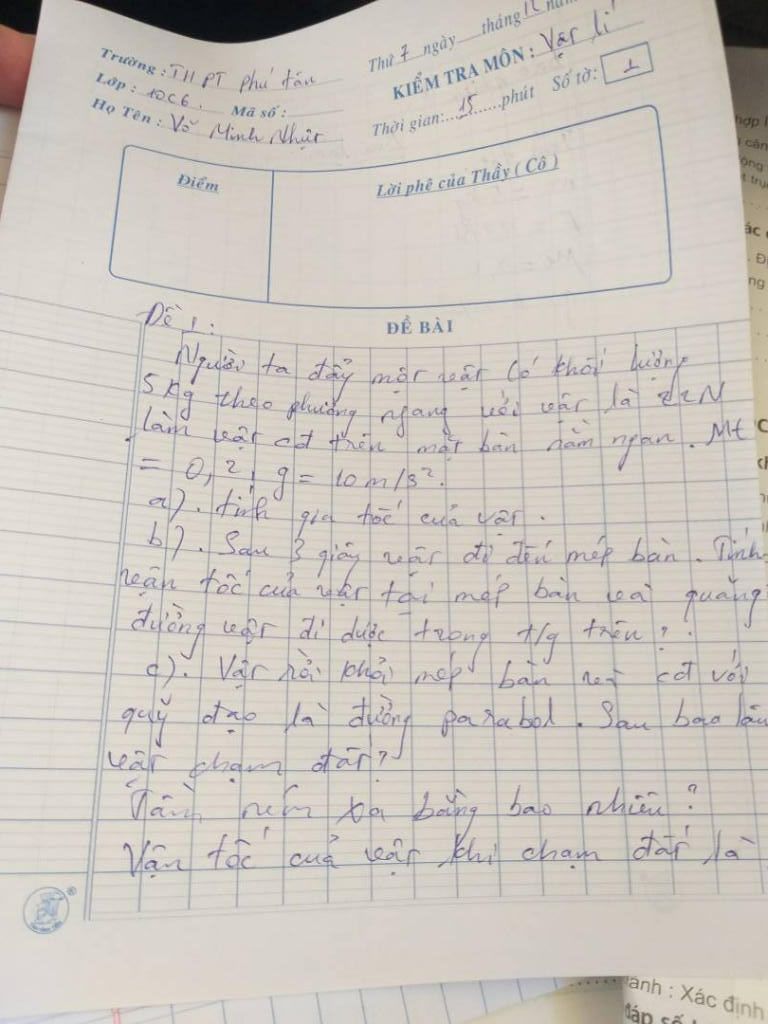 Trường : THPT Phú Tân
Lớp : 10C6.
Mã số :
Họ Tên : Võ Minh Nhựt
Thứ 7 ngày tháng 12 năm
KIỂM TRA MÔN : Vật lí
Thời gian: 15 phút Số tờ: 1
Điểm
Lời phê của Thầy ( Cô )
ĐỀ BÀI
Đề 1 :
Người ta đẩy một vật có khối lượng
5 kg theo phương ngang với vật là N
làm vật cđ trên mặt bàn nằm ngan. Mt
= 0,2, g = 10 m/s².
a). tính gia tốc của vật.
b). Sau 3 giây vật đi đến mép bàn. Tính
vận tốc của vật tại mép bàn và quãng
đường vật đi được trong t/g trên?.
c). Vật rời khỏi mép bàn và cđ với
quỹ đạo là đường parabol. Sau bao lâu
vật chạm đất?
Tầm ném xa bằng bao nhiêu?
Vận tốc của vật khi chạm đất là
hợp l
ác
Đị
ành : Xác định
đáp số